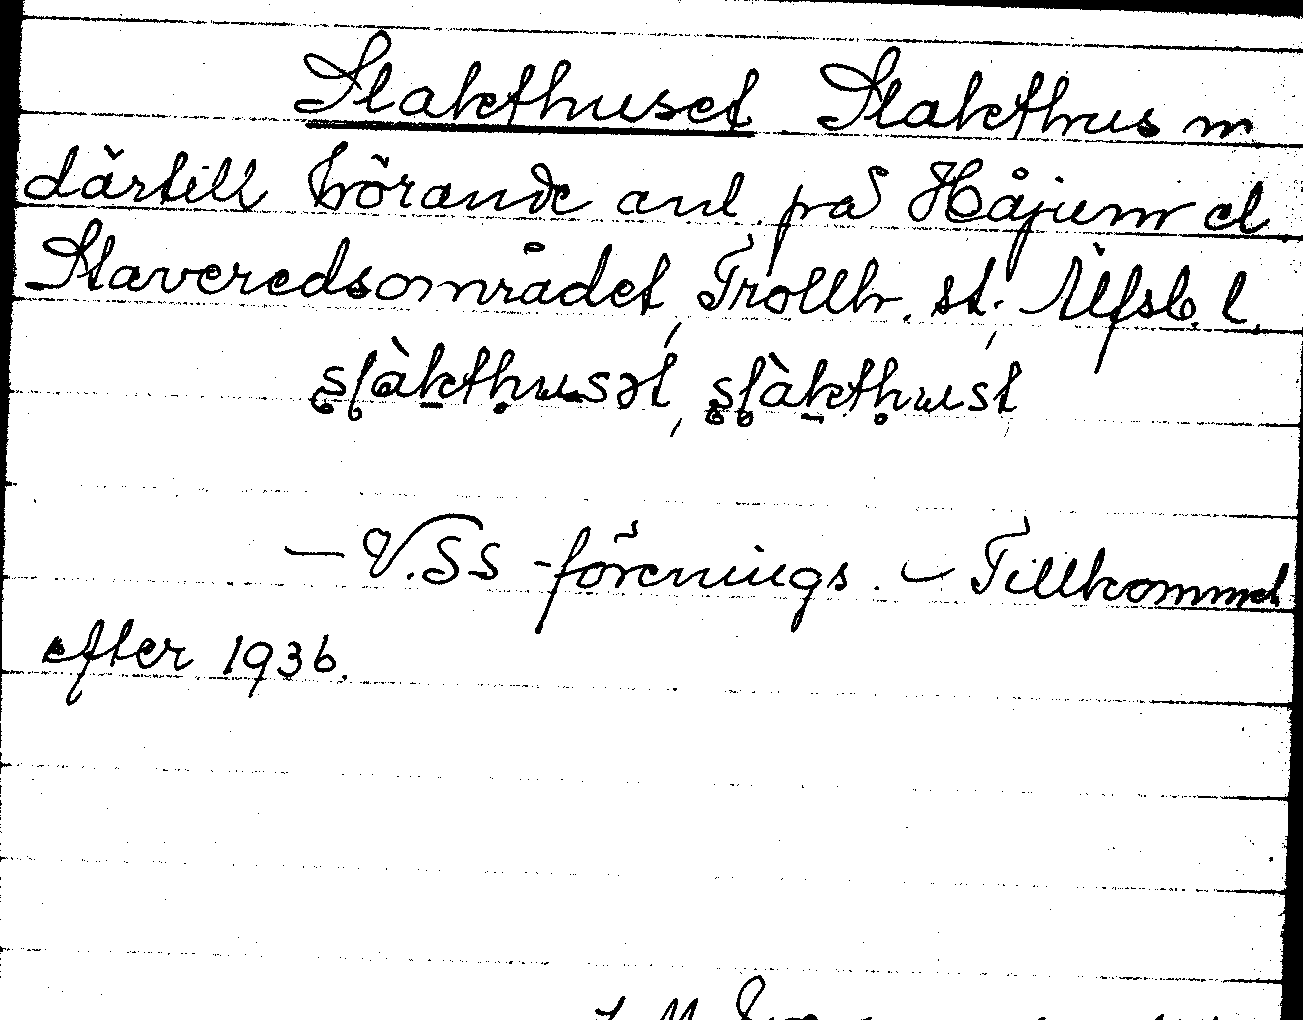 Slakthuset Slakthus m
därtill hörande anl. på Håjum el.
Staveredsområdet, Trollh. st., Älfsb. l.
slàkthusət, slàkthust
— V.SS -förenings. — Tillkommet
efter 1936.